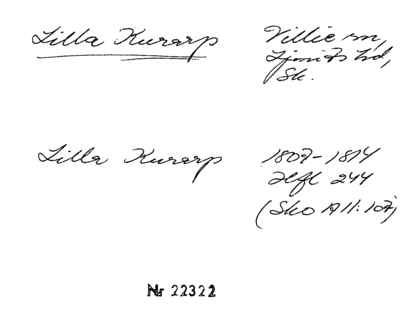 Lilla Kurarp Villie sn,
Ljunits hd,
Sk.
Lilla Kurarp 1807-1814
Hfl 244
(Sko A II: 107)
Nr 22322